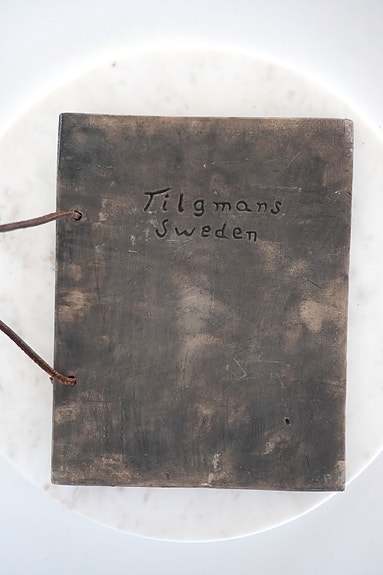 Tilgmans
Sweden